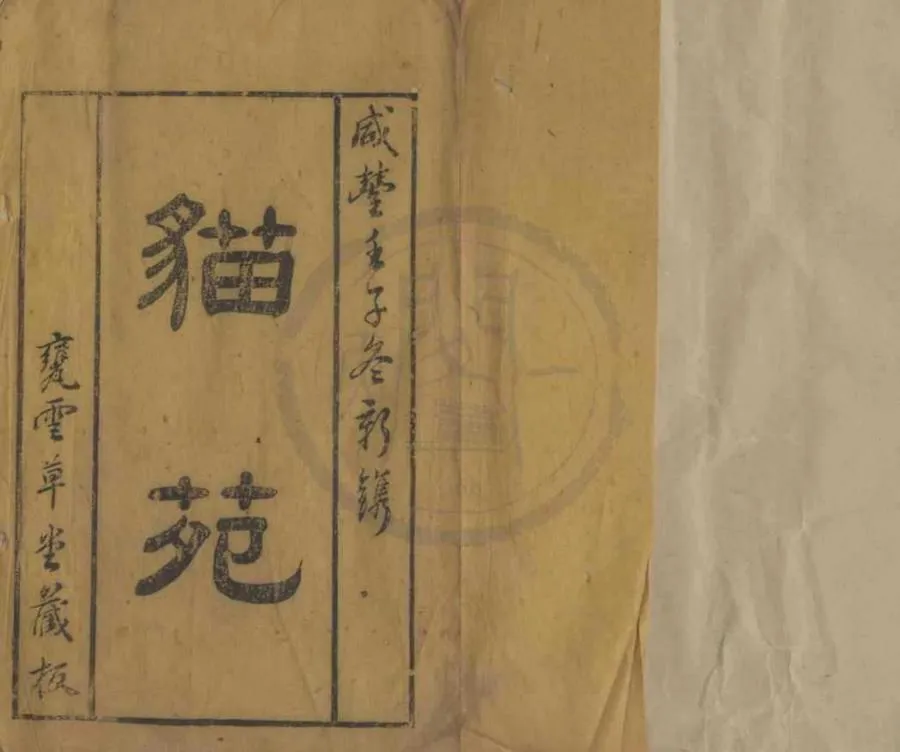 咸豐壬子冬新鐫
貓苑
甕雲草堂藏板